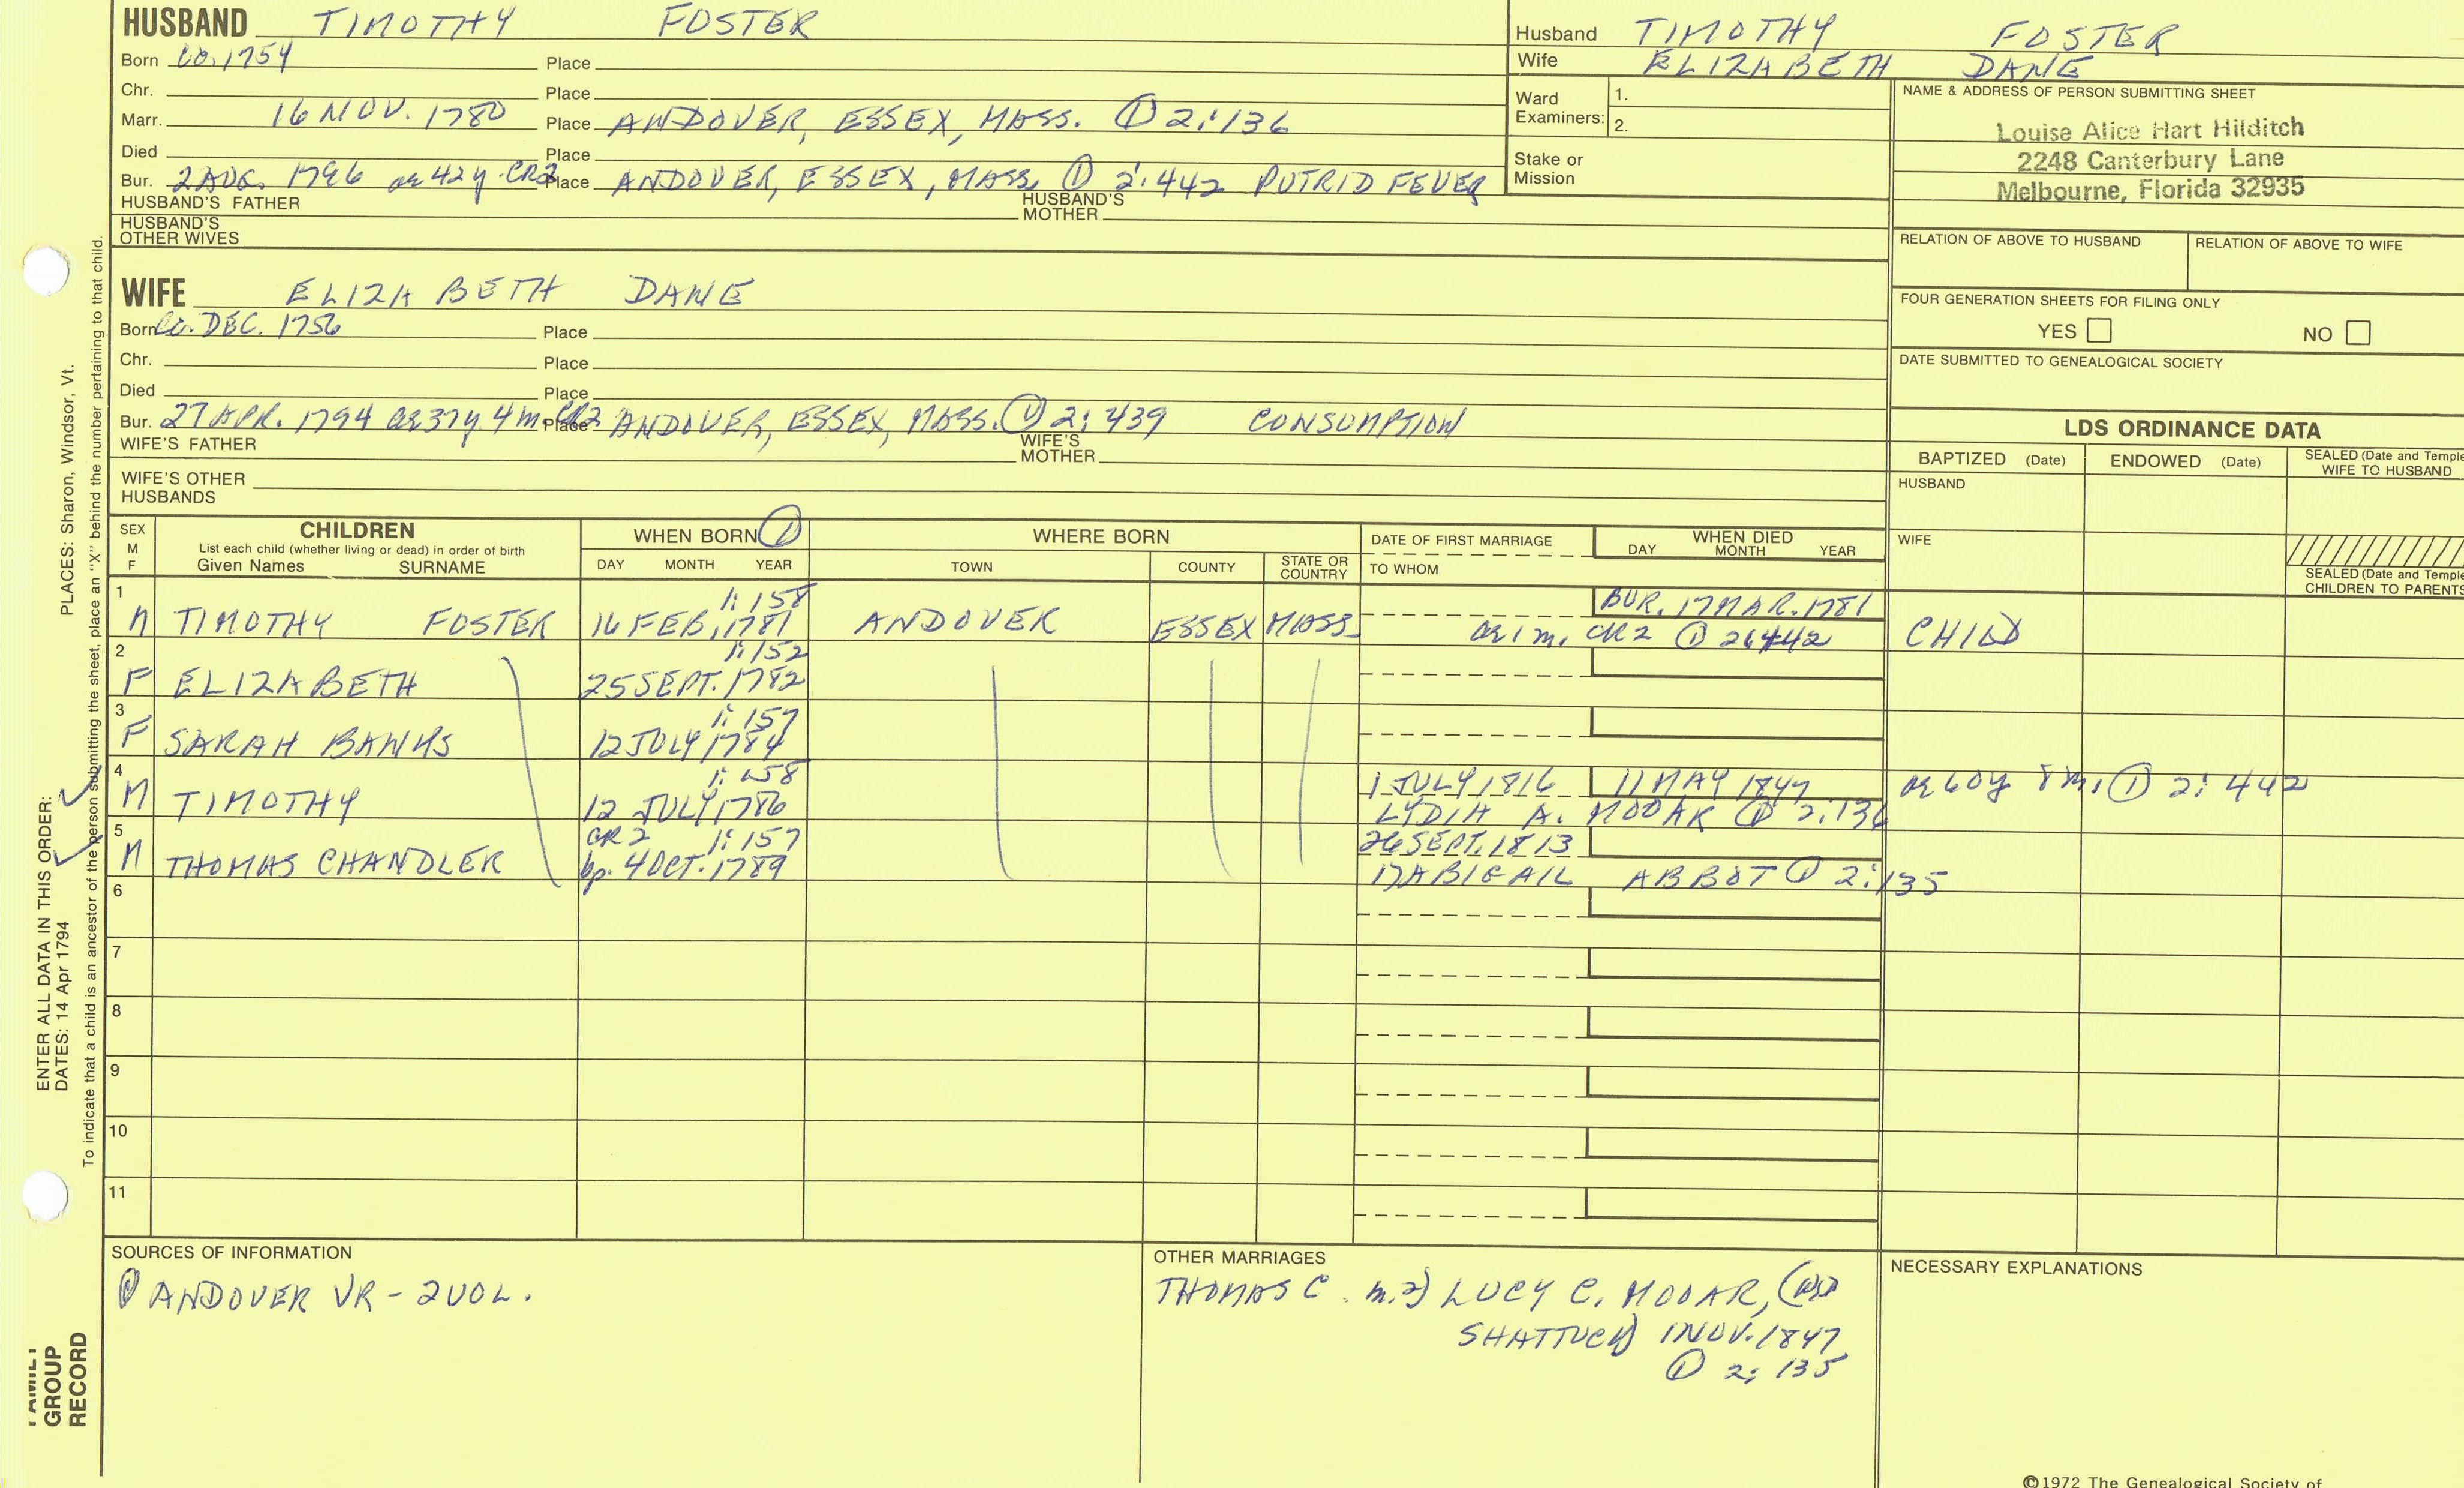 HUSBAND TIMOTHY FOSTER
Born ca. 1754 Place
Chr. Place
Marr. 16 NOV. 1780 Place ANDOVER, ESSEX, MASS. ① 2:136
Died Place
Bur. 2 AUG. 1796 ae 42y. CR2 Place ANDOVER, ESSEX, MASS. ① 2:442 PUTRID FEVER
HUSBAND'S FATHER HUSBAND'S MOTHER
HUSBAND'S OTHER WIVES
Husband TIMOTHY FOSTER
Wife ELIZABETH DANE
Ward Examiners: 1.
2.
Stake or Mission
NAME & ADDRESS OF PERSON SUBMITTING SHEET
Louise Alice Hart Hilditch
2248 Canterbury Lane
Melbourne, Florida 32935
RELATION OF ABOVE TO HUSBAND RELATION OF ABOVE TO WIFE
FOUR GENERATION SHEETS FOR FILING ONLY
YES NO
DATE SUBMITTED TO GENEALOGICAL SOCIETY
WIFE ELIZABETH DANE
Born ca. DEC. 1756 Place
Chr. Place
Died Place
Bur. 27 APR. 1794 ae 37y. 4m. CR2 Place ANDOVER, ESSEX, MASS. ① 2:439 CONSUMPTION
WIFE'S FATHER WIFE'S MOTHER
WIFE'S OTHER HUSBANDS
LDS ORDINANCE DATA
BAPTIZED (Date) ENDOWED (Date) SEALED (Date and Temple
WIFE TO HUSBAND
HUSBAND
WIFE
SEALED (Date and Temple
CHILDREN TO PARENTS
SEX M F CHILDREN WHEN BORN ① WHERE BORN DATE OF FIRST MARRIAGE WHEN DIED
List each child (whether living or dead) in order of birth
Given Names SURNAME DAY MONTH YEAR TOWN COUNTY STATE OR COUNTRY TO WHOM DAY MONTH YEAR
1 1:158 BUR. 17 MAR. 1781
M TIMOTHY FOSTER 16 FEB. 1781 ANDOVER ESSEX MASS. ae 1 m. CR2 ① 2:442 CHILD
2 1:152
F ELIZABETH 25 SEPT. 1782
3 1:157
F SARAH BANKS 12 JULY 1784
4 1:158 1 JULY 1816 11 MAY 1847 ae 60y 8m. ① 2:442
M TIMOTHY 12 JULY 1786 LYDIA A. MOOAR ① 2:136
5 CR2 1:157 26 SEPT. 1813
M THOMAS CHANDLER bp. 4 OCT. 1789 1) ABIGAIL ABBOT ① 2:135
6
7
8
9
10
11
SOURCES OF INFORMATION
① ANDOVER VR - 2 VOL.
OTHER MARRIAGES
THOMAS C. m. 2) LUCY C. MOOAR,
SHATTUCK) 1 NOV. 1847
① 2: 135
NECESSARY EXPLANATIONS
©1972 The Genealogical Society of
ENTER ALL DATA IN THIS ORDER:
DATES: 14 Apr 1794 PLACES: Sharon, Windsor, Vt.
To indicate that a child is an ancestor of the person submitting the sheet, place an "X" behind the number pertaining to that child.
FAMILY
GROUP
RECORD